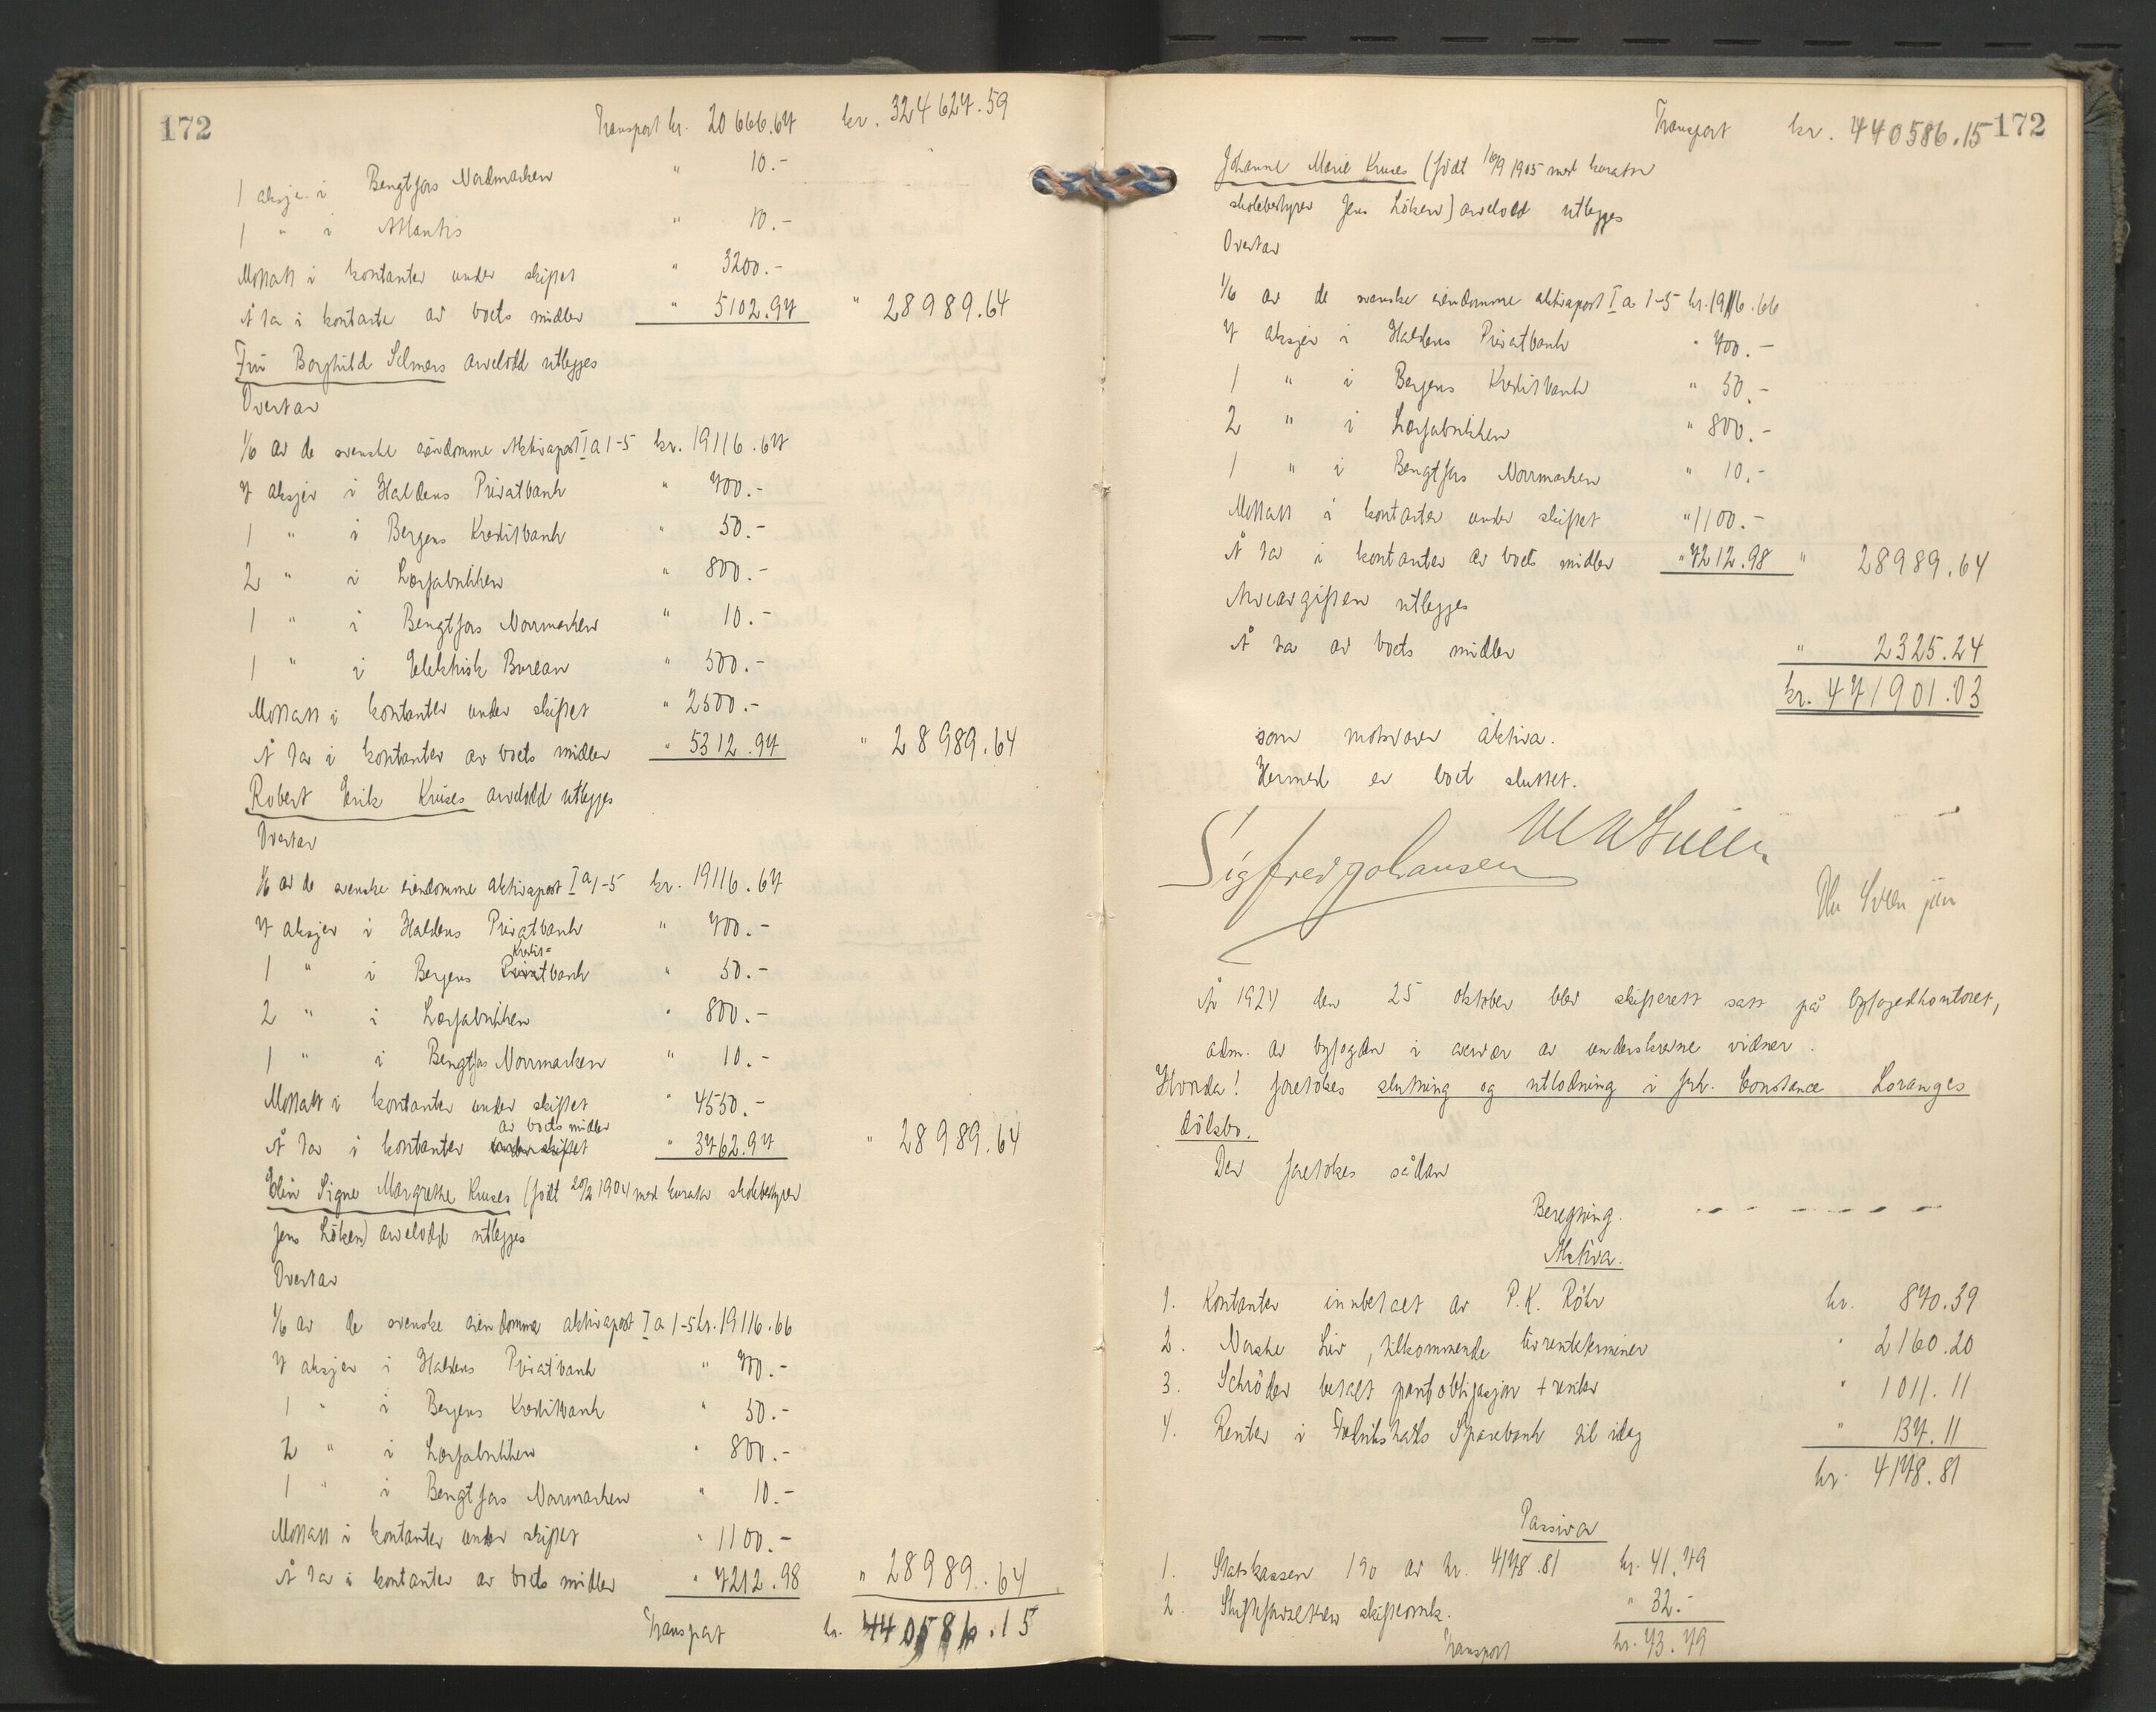 172
Transport kr. 20666.67 kr. 324627.59
1 aksje i Bengtsfors Nordmarken " 10.-
1 " i Atlantis " 10.-
Mottatt i kontanter under skiftet " 3200.-
Å ta i kontante av boets midler " 5102.97 " 28989.64
Fru Borghild Selmers arvelodd utlegges
Overtar
1/6 av de svenske eiendomme Aktivapost I a 1-5 kr. 19116.67
7 aksjer i Haldens Privatbank " 700.-
1 " i Bergens Kreditbank " 50.-
2 " i Lærfabrikken " 800.-
1 " i Bengtsfors Norrmarken " 10.-
1 " i Elektrisk Bureau " 500.-
Mottatt i kontanter under skiftet " 2500.-
Å ta i kontanter av boets midler " 5312.97 " 28989.64
Robert Erik Kruses arvelodd utlegges
Overtar
1/6 av de svenske eiendomme aktivapost I a 1-5 kr. 19116.67
7 aksjer i Haldens Privatbank " 700.-
1 " i Bergens Kredit= Privatbank " 50.-
2 " i Lærfabrikken " 800.-
1 " i Bengtsfors Norrmarken " 10.-
Mottatt i kontanter under skiftet " 4550.-
Å ta i kontanter under skiftet av boets midler " 3762.97 " 28989.64
Elin Signe Margrethe Kruses (født 20/2 1904 med kurator skolebestyrer
Jens Löken) arvelodd utlegges
Overtar
1/6 av de svenske eiendomme aktivapost I a 1-5 kr. 19116.66
7 aksjer i Haldens Privatbank " 700.-
1 " i Bergens Kreditbank " 50.-
2 " i Lærfabrikken " 800.-
1 " i Bengtsfors Norrmarken " 10.-
Mottatt i kontanter under skiftet " 1100.-
Å ta i kontanter av boets midler " 7212.98 " 28989.64
Transport kr. 440586.15
Transport kr. 440586.15
172
Johanne Marie Kruses (født 16/9 1905 med kurator
skolebestyrer Jens Löken) arvelodd utlegges
Overtar
1/6 av de svenske eiendomme aktivapost I a 1-5 kr. 19116.66
7 aksjer i Haldens Privatbank " 700.-
1 " i Bergens Kreditbank " 50.-
2 " i Lærfabrikken " 800.-
1 " i Bengtsfors Norrmarken " 10.-
Mottatt i kontanter under skiftet " 1100.-
Å ta i kontanter av boets midler " 7212.98 " 28989.64
Arveavgiften utlegges
Å ta av boets midler " 2325.24
kr. 471901.03
som motsvarer aktiva.
Hermed er boet sluttet.
Sigfred Johansen
År 1924 den 25 oktober blev skifterett satt på byfogedkontoret,
adm. av byfogden i nærvær av underskrevne vidner.
Hvorda! foretokes slutning og utlodning i frk. Constance Loranges
dödsbo.
Der foretokes sådan
Beregning.
Aktiva.
1. Kontanter innbetalt av P.K. Röhr kr. 870.39
2. Norske Liv, tilkommende livrenteterminer " 2160.20
3. Schröder betalt pantobligasjon + renter " 1011.11
4. Renter i Fredrikshalds Sparebank til idag " 137.11
kr. 4178.81
Passiva
1. Statskassen 1% av kr. 4178.81 kr. 41.79
2. Skifteforvalteren skifteomk. " 32.-
Transport kr. 73.79